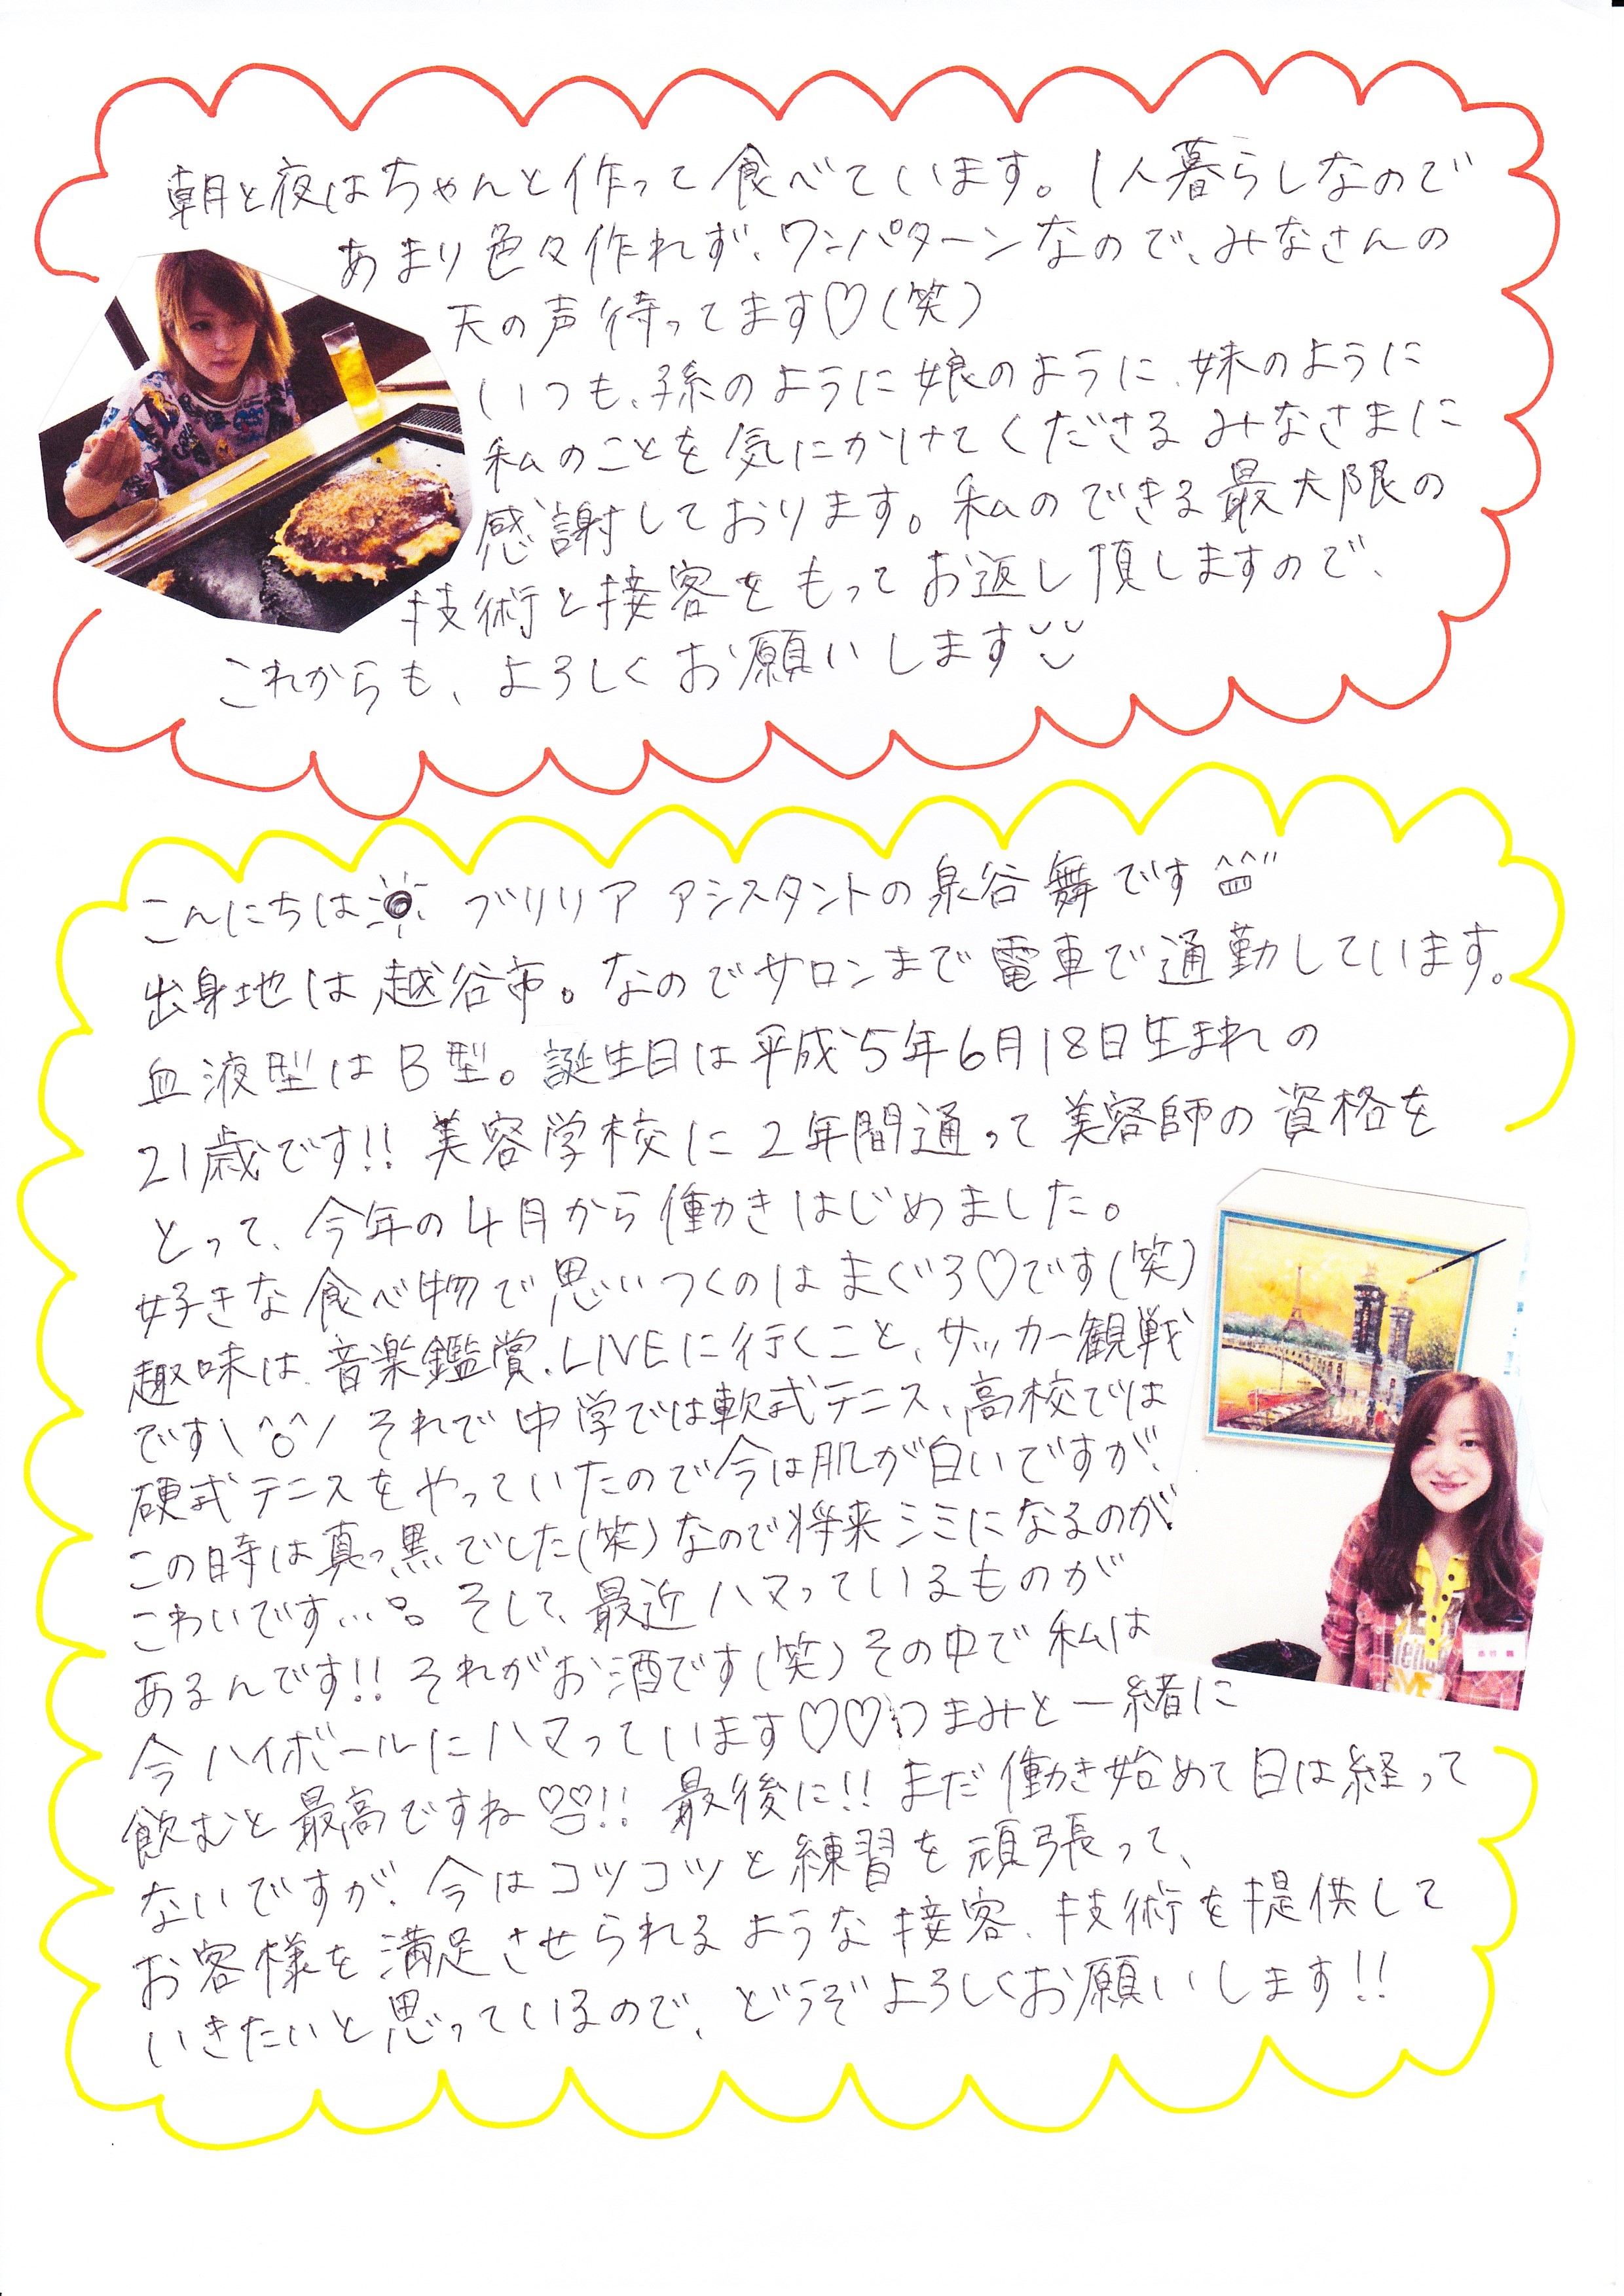 朝と夜はちゃんと作って食べています。1人暮らしなので
あまり色々作れず、ワンパターンなので、みなさんの
天の声待ってます♡(笑)
いつも、孫のように娘のように、妹のように
私のことを気にかけてくださるみなさまに
感謝しております。私のできる最大限の
技術と接客をもってお返し頂しますので、
これからも、よろしくお願いします
こんにちは ブリリア アシスタントの泉谷舞です
出身地は越谷市。なのでサロンまで電車で通勤しています。
血液型はB型。誕生日は平成5年6月18日生まれの
21歳です!! 美容学校に2年間通って美容師の資格を
とって、今年の4月から働きはじめました。
好きな食べ物で思いつくのはまぐろ♡です(笑)
趣味は、音楽鑑賞、LIVEに行くこと、サッカー観戦
です\(^o^)/ それで中学では軟式テニス、高校では
硬式テニスをやっていたので今は肌が白いですが、
この時は真っ黒でした(笑)なので将来シミになるのが
こわいです… そして、最近ハマっているものが
あるんです!! それがお酒です(笑)その中で私は
今ハイボールにハマっています♡♡つまみと一緒に
飲むと最高ですね!! 最後に!! まだ働き始めて日は経って
ないですが、今はコツコツと練習を頑張って、
お客様を満足させられるような接客、技術を提供して
いきたいと思っているので、どうぞよろしくお願いします!!